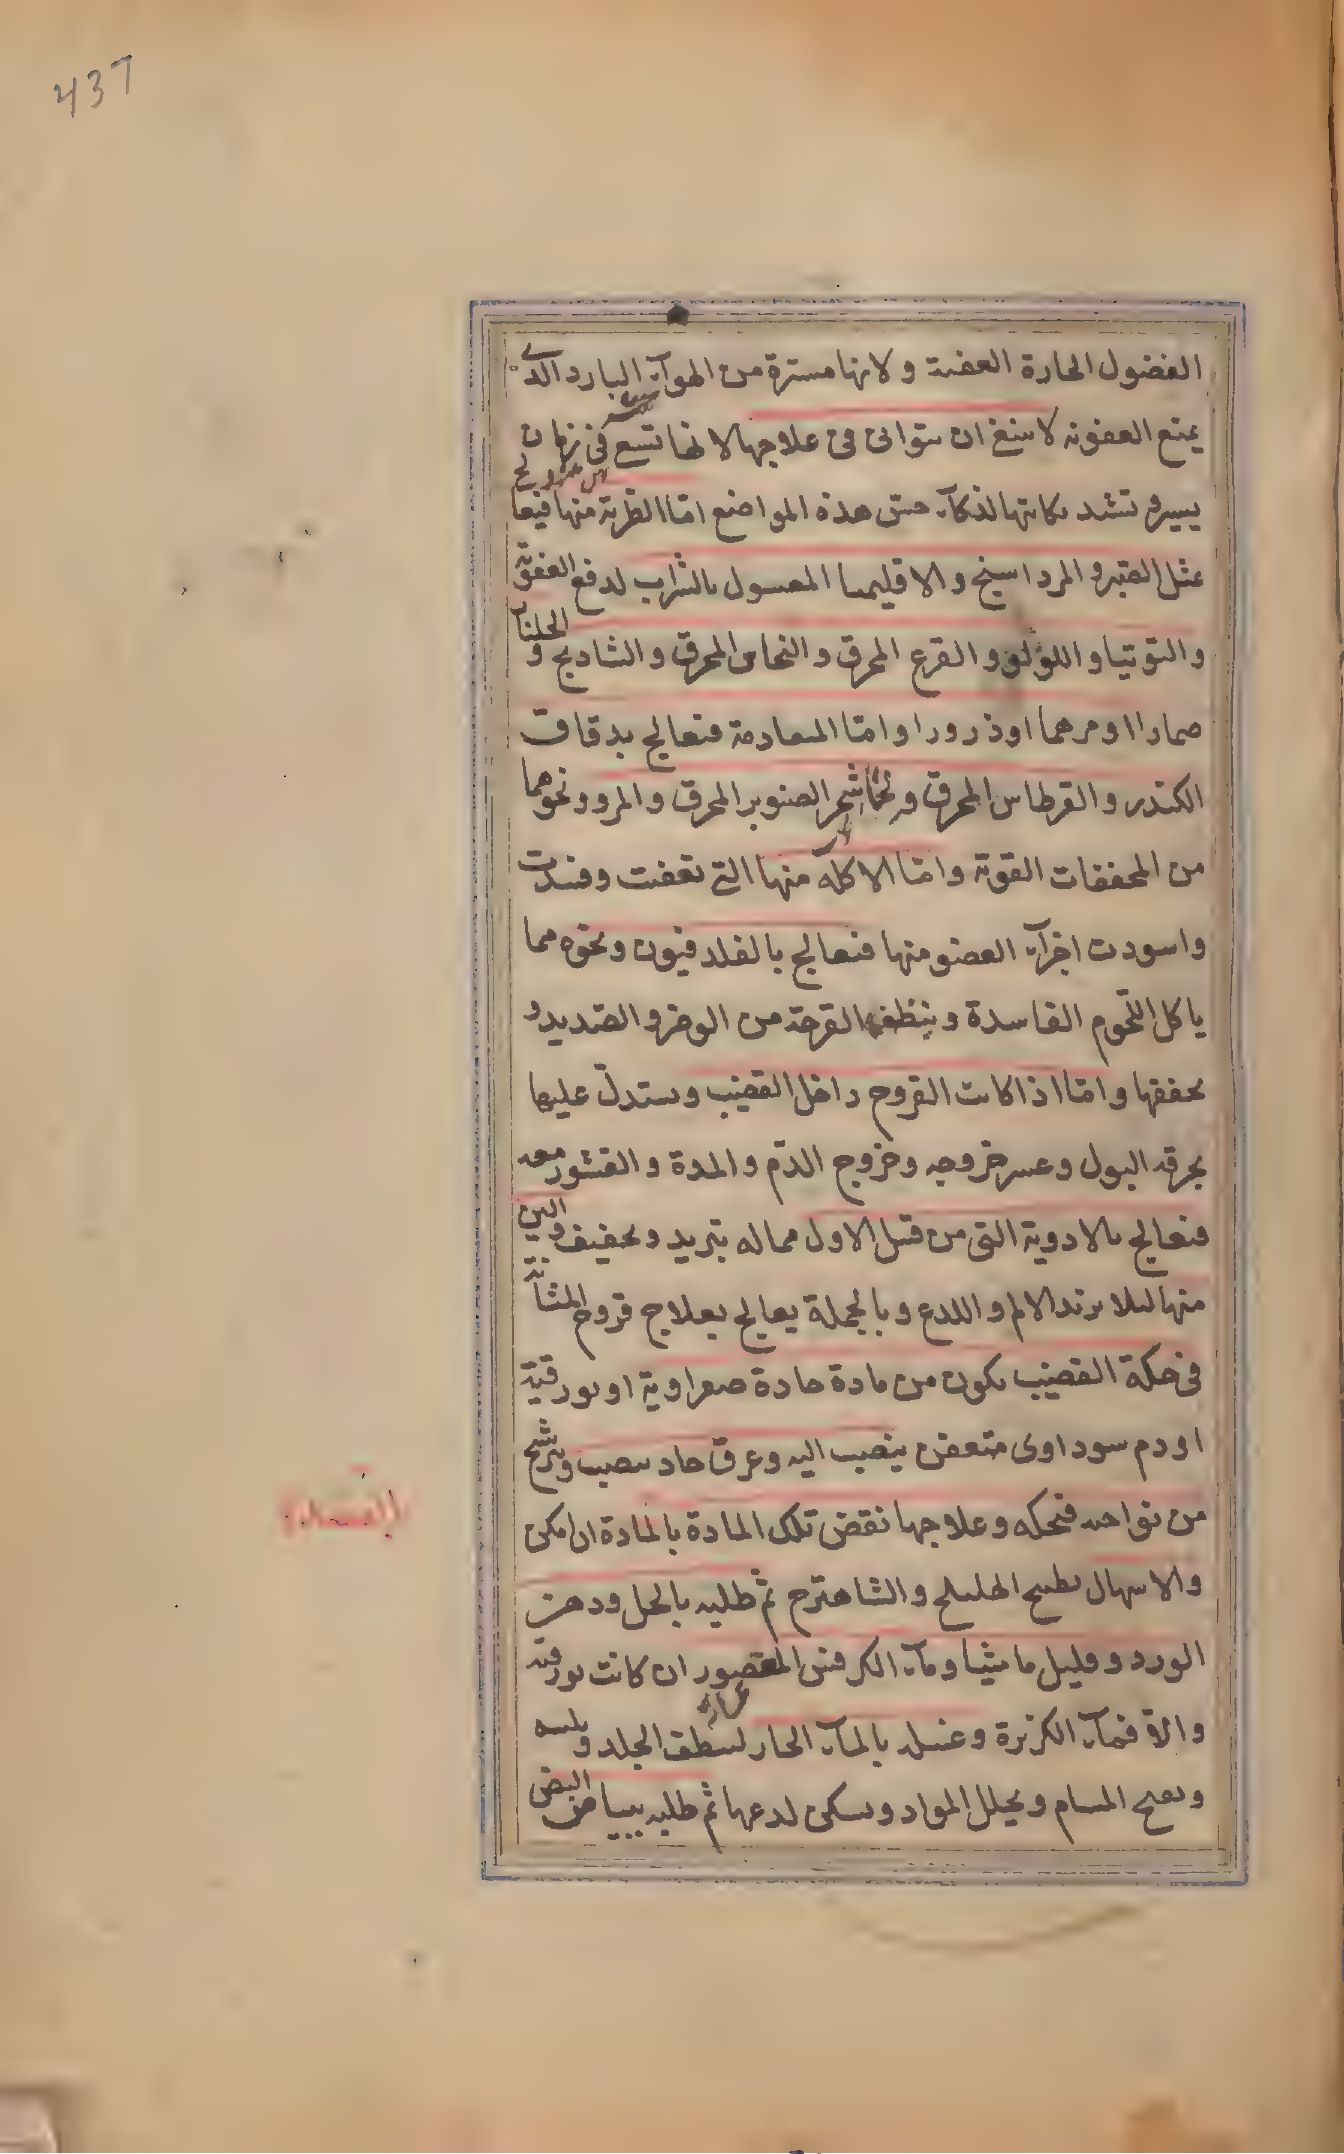 437
الفضول الحارة العفنة ولانها مسترة من الهوآء البارد الذى
يمنع العفونه لا ينبغى ان يتوانى فى علاجها لانها تسع فى زمان
يسير و تشتد نكايتها لذكآء حس هذه المواضع امّا الطرية منها فيعالج
بمثل الصّبر و المرداسنج و الاقليميا المغسول بالشراب لدفع العفونة
و التوتيا و اللؤلؤ و القرع المحرق و النحاس المحرق و الشادنج و الجلنار
ضمادا او مرهما او ذرورا و امّا المتقادمة فتعالج بدقاق
الكندر و القرطاس المحرق و شجر الصنوبر المحرق و المر و نحوهما
من المجففات القوية و امّا الاكله منها التى تعفنت و فسدت
و اسودت اجزآء العضو منها فتعالج بالفلدفيون و نحوه مما
ياكل اللّحوم الفاسدة و ينظف القرحة من الوضر و الصّديد و
يجففها و امّا اذا كانت القروح داخل القضيب و يستدلّ عليها
بحرقة البول و عسر خروجه و خروج الدّم و المدة و القشور معه
فتعالج بالادوية التى من قبل الاول مما له تبريد و تجفيف و الين
منها لئلا يزيد الالم و اللدع و بالجملة يعالج بعلاج قروح المثانة
فى حكة القضيب يكون من مادة حادة صفراوية او بورقية
او دم سوداوى متعفن ينصب اليه و عرق حاد يصيب و يترشح
من نواحيه فتحكه و علاجها نقض تلك المادة بالمادة ان امكن
و الاسهال بطبيخ الهليلج و الشاهترج ثم طليه بالخل و دهن
الورد و قليل ماميثا و مآء الكرفس المعصور ان كانت بورقية
و الا فمآء الكزبرة و غسله بالمآء الحار ليلطف الجلد و يلينه
و يفتح المسام و يحلل المواد و يسكن لدعها ثم طليه ببياض البيض